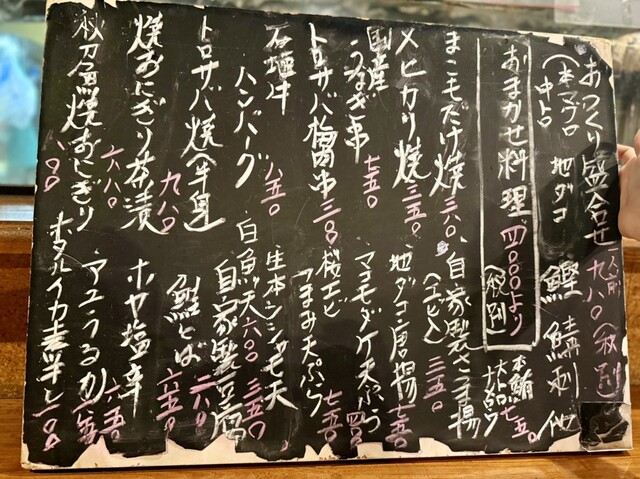 おつくり盛合せ 一人前 九八〇(税別)
(本マグロ 地ダコ 鰹 鯖刺 他
中トロ
おまかせ料理 四〇〇〇より
(税別)
本鮪
七五〇
まこもだけ焼 三六〇
自家製さつま揚
(エビ入) 三五〇
メヒカリ焼 三五〇
地ダコ唐揚 七五〇
国産
うなぎ串 七五〇
マコモダケ天ぷら
トロサバ梅肉串 三八〇
桜エビ
つまみ天ぷら 七五〇
石垣牛
ハンバーグ 八五〇
生本シシャモ天 三五〇
白魚天 六〇〇
自家製豆腐
トロサバ焼(半身) 九八〇
鮭とば 六五〇
焼おにぎり茶漬 六八〇
ホヤ塩辛 六五〇
秋刀魚焼おにぎり
アユうるか
ホタルイカ素干し